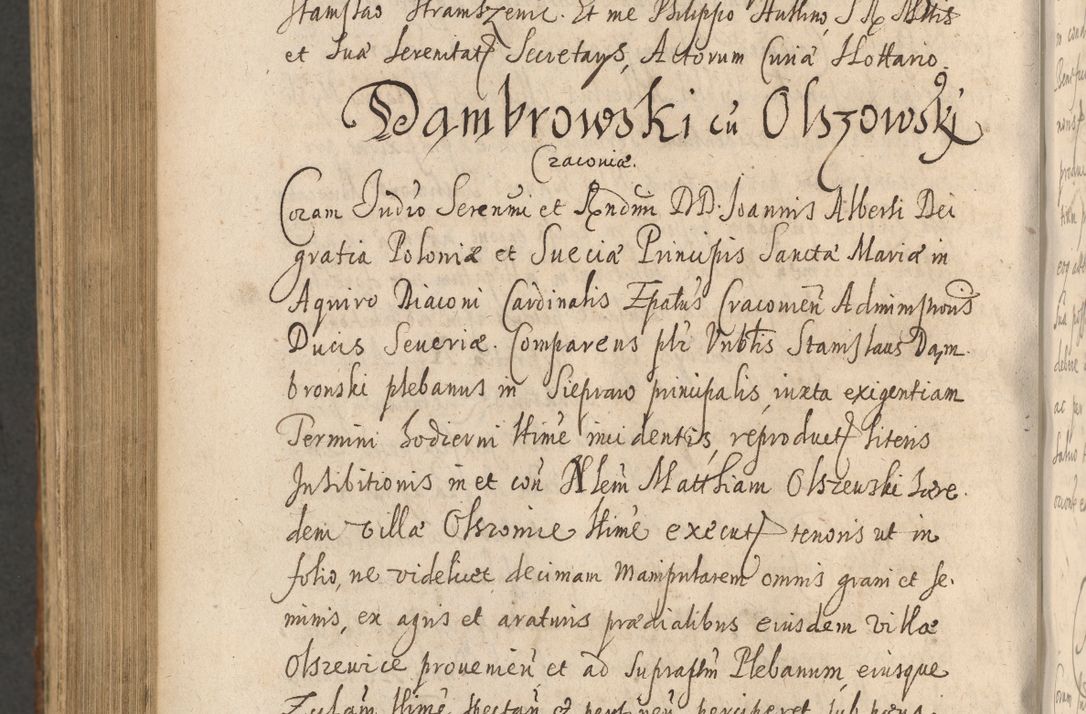 Stanislao Strambzenic. Et me Philippo Huttino, S R Mttis
et Suæ Serenitat. Secretarys, Actorum Curiæ Nottario.
Dambrowski cũ Olszowskj
Cracoviæ.
Coram Judio Serenmi et Rndmi DD. Joannis Alberti Dei
gratia Poloniæ et Sueciæ Principis Sanctæ Mariæ in
Aquiro Diaconi Cardinalis Epatus Cracovien Adminisñois
Ducis Severiæ. Comparens psr Vnblis Stanislaus Dam
bronski plebanus in Siepraw principalis, iuxta exigentiam
Termini hodierni Hinc incidentis, reproduct. literis
Inhibitionis in et con Nlem Matthiam Olszewski hære.
dem villæ Olszowice Hinc execut. tenoris ut in
folio, ne videlicet decimam Manipularem omnis grani et se.
minis, ex agris et araturis prædialibus eiusdem villæ
Olszewice provenien et ad suprasttm Plebanum, eiusque
Ecclam Hinc spectan